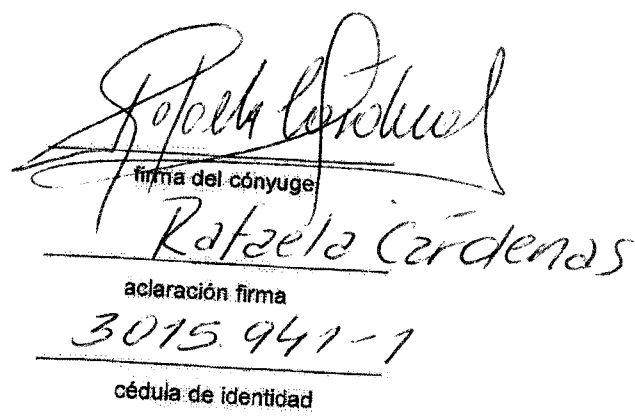 Rafaela Cárdenas
firma del cónyuge
Rafaela Cárdenas
aclaración firma
3015.941-1
cédula de identidad